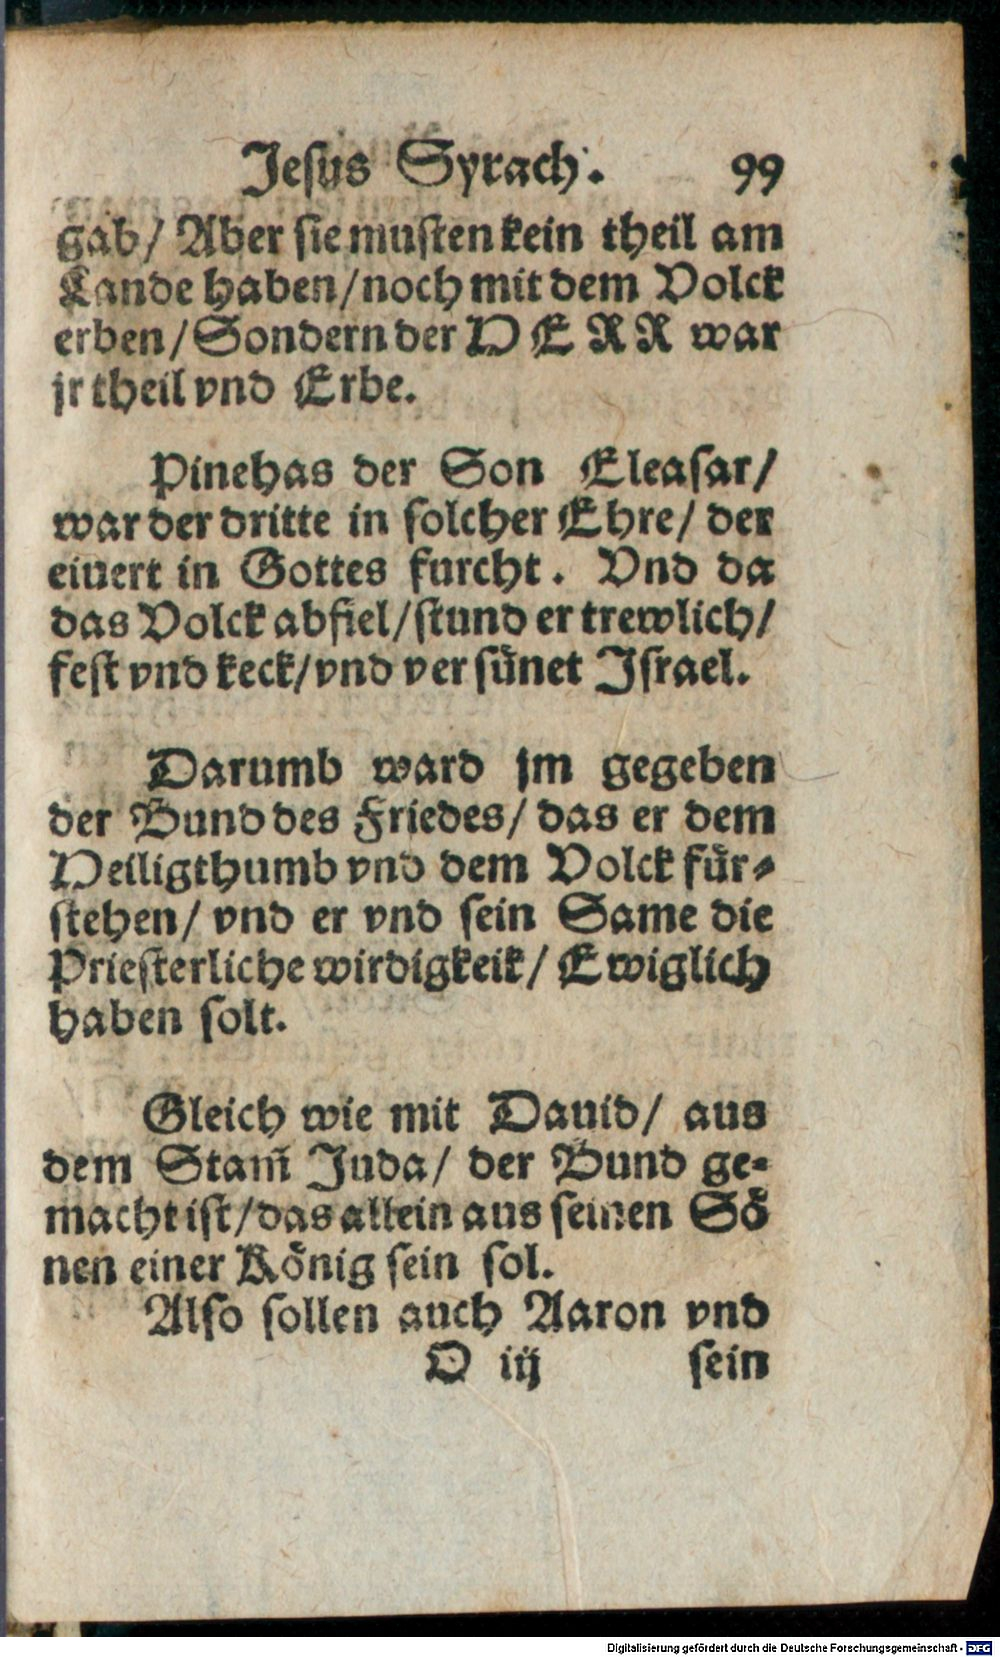 Jesus Syrach. 99
gab/ Aber sie musten kein theil am
Lande haben/noch mit dem Volck
erben/Sondern der HERR war
jr theil vnd Erbe.
Pinehas der Son Eleasar/
war der dritte in solcher Ehre/ der
eiuert in Gottes furcht. Vnd da
das Volck abfiel/stund er trewlich/
fest vnd keck/vnd versünet Israel.
Darumb ward jm gegeben
der Bund des Friedes/ das er dem
Heiligthumb vnd dem Volck für-
stehen/ vnd er vnd sein Same die
Priesterliche wirdigkeik/ Ewiglich
haben solt.
Gleich wie mit Dauid/ aus
dem Stam̃ Juda/ der Bund ge-
macht ist/das allein aus seinen Sö
nen einer König sein sol.
Also sollen auch Aaron vnd
O iij sein
Digitalisierung gefördert durch die Deutsche Forschungsgemeinschaft - DFG